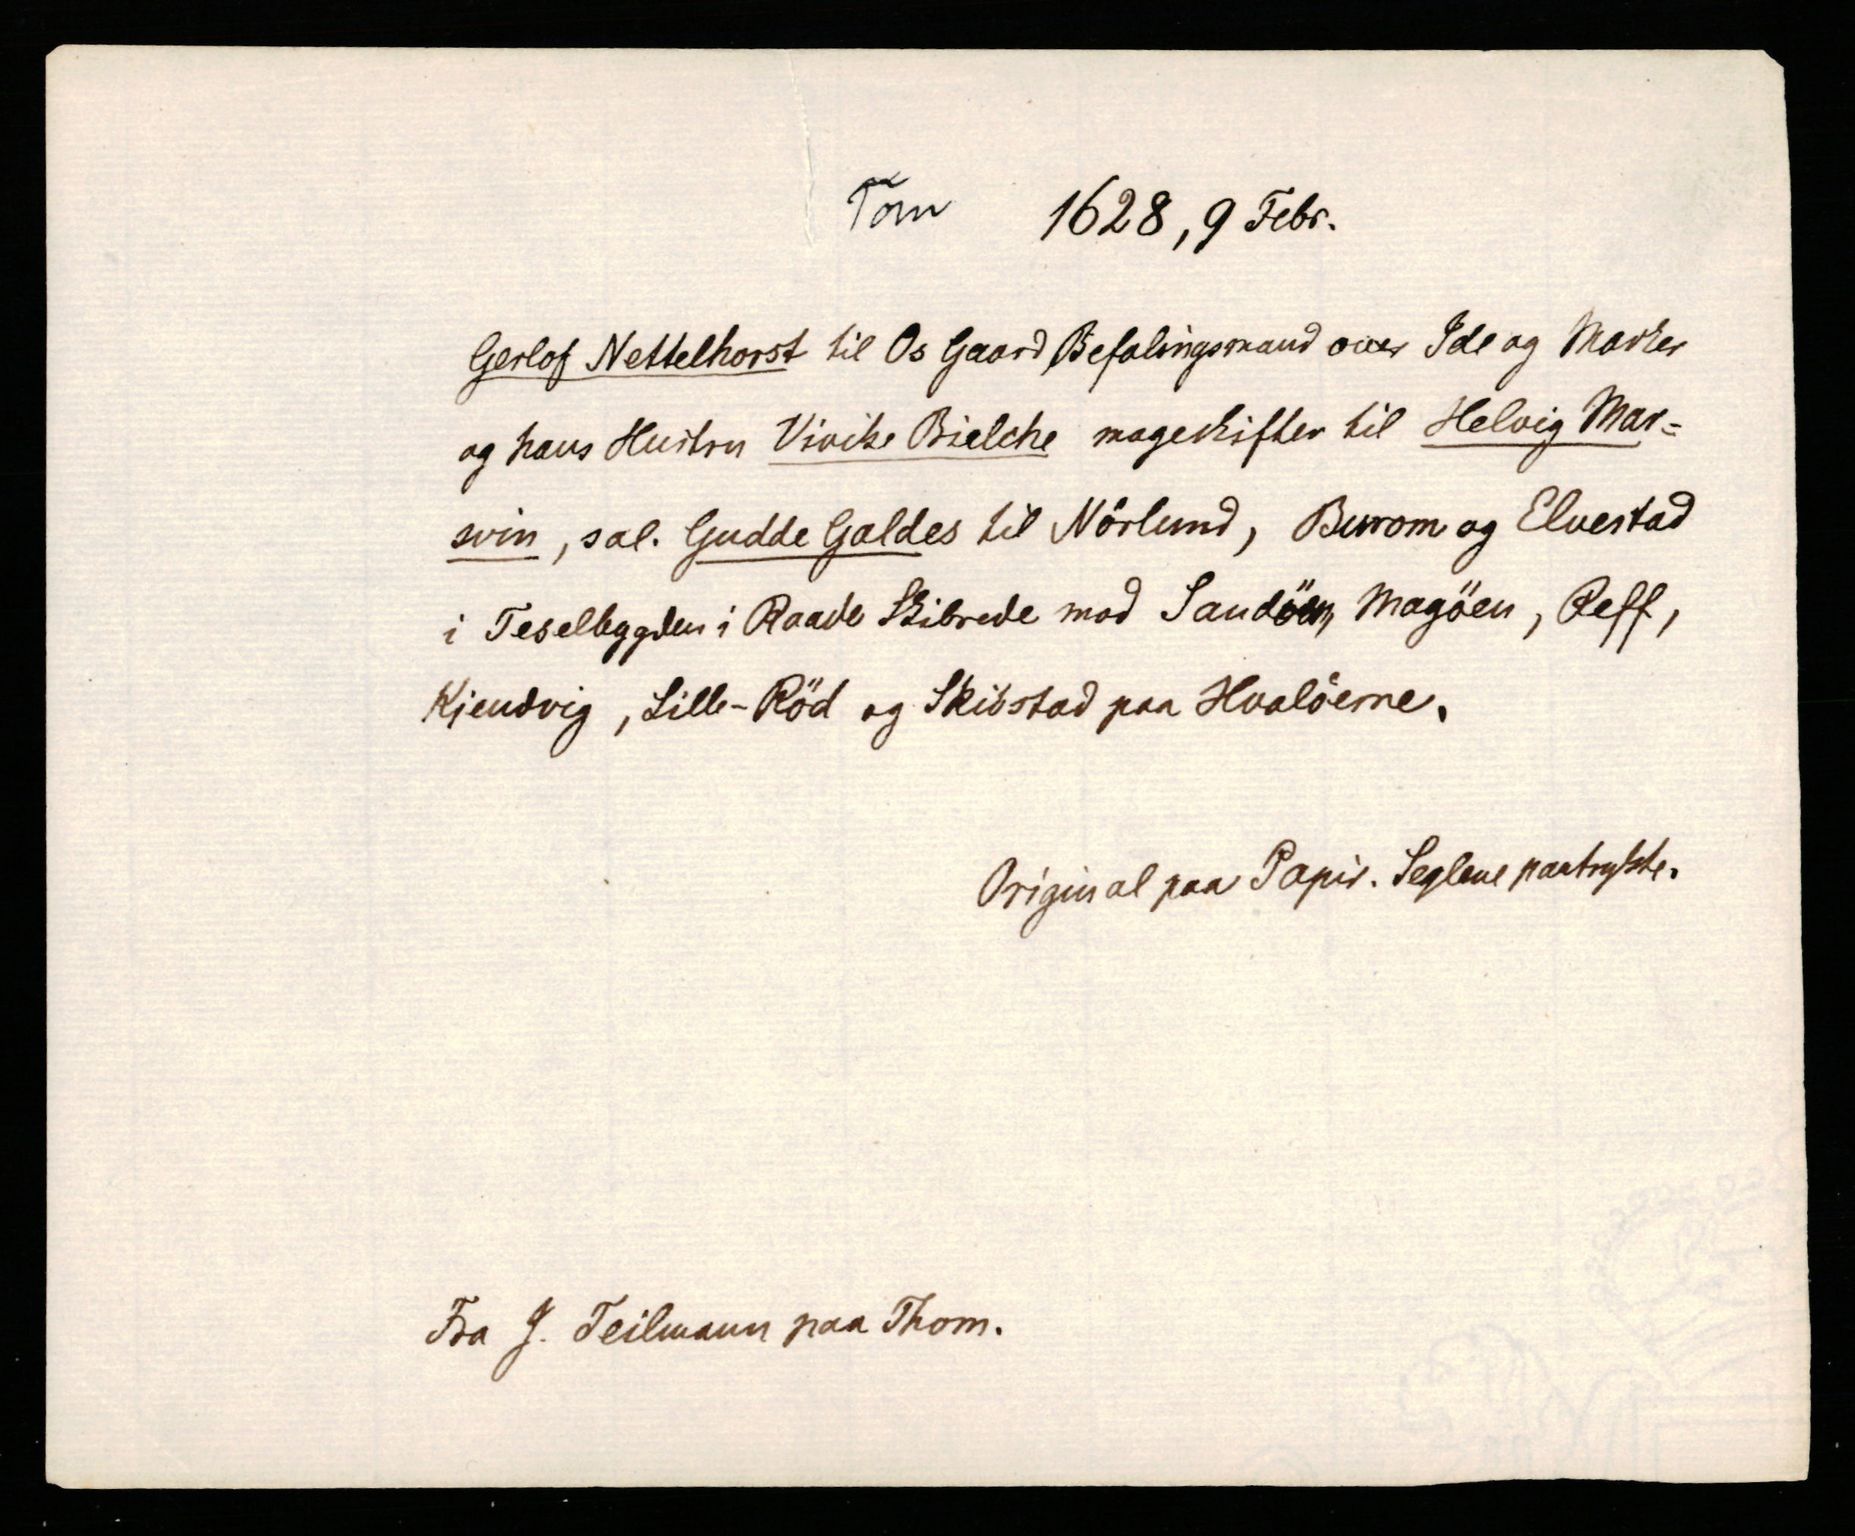 Tom 1628, 9 Febr.
Gerlof Nettelhorst til Os Gaard Befalingsmand over Ide og Marker
og hans Hustru Vivike Bielche mageskifter til Helvig Mar=
svin, sal. Gudde Galdes til Nörlund, Burom og Elvestad
i Teselbygden i Raade Skibrede mod Sandöen, Magöen, Reff,
Kjendvig, Lille-Röd og Skibstad paa Hvalöerne.
Original paa Papir. Seglene paatrykte.
Fra J. Teilmann paa Thom.